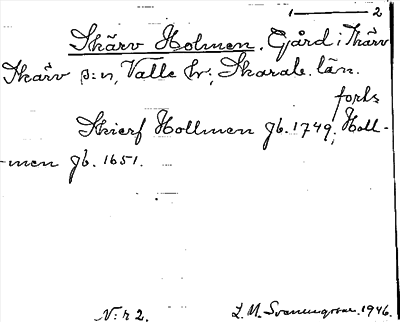 1 — 2
Skärv Holmen. Gård i Skärv
Skärv s:n, Valle hr; Skarab. län.
forts
Skierf Hollmen Jb. 1749; Holl-
-men Jb. 1651.
N:r 2. L. M. Svenungsson. 1946.